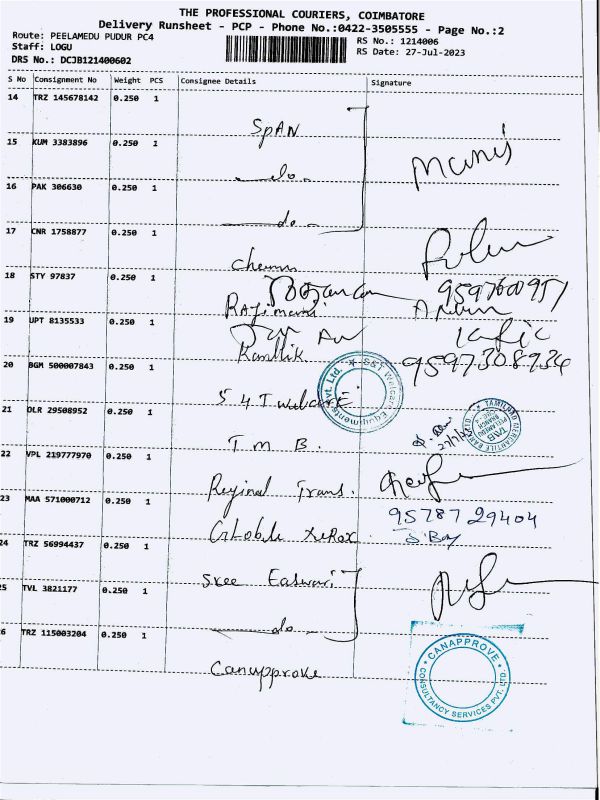 THE PROFESSIONAL COURIERS, COIMBATORE
Delivery Runsheet - PCP - Phone No.:0422-3505555 - Page No.:2
Route: PEELAMEDU PUDUR PC4
RS No.: 1214006
Staff: LOGU
RS Date: 27-Jul-2023
DRS No.: DCJB121400602
S No Consignment No Weight PCS Consignee Details Signature
14 TRZ 145678142 0.250 1
SPAN
15 KUM 3383896 0.250 1
do
16 PAK 306630 0.250 1
do
17 CNR 1758877 0.250 1
18 STY 97837 0.250 1
9597600951
19 UPT 8135533 0.250 1
Karthik
9597308934
20 BGM 500007843 0.250 1
S & T Welcare
S&T Welcare Equipments Pvt. Ltd.
21 DLR 29508952 0.250 1
T M B.
TAMILNAD MERCANTILE BANK LTD
TMB
27/7/23
22 VPL 219777970 0.250 1
Reginal Trans.
23 MAA 571000712 0.250 1
95787 29404
Globle XeRox
24 TRZ 56994437 0.250 1
Sree Easwari
25 TVL 3821177 0.250 1
do
26 TRZ 115003204 0.250 1
Canapprove
CANAPPROVE
CONSULTANCY SERVICES PVT. LTD.